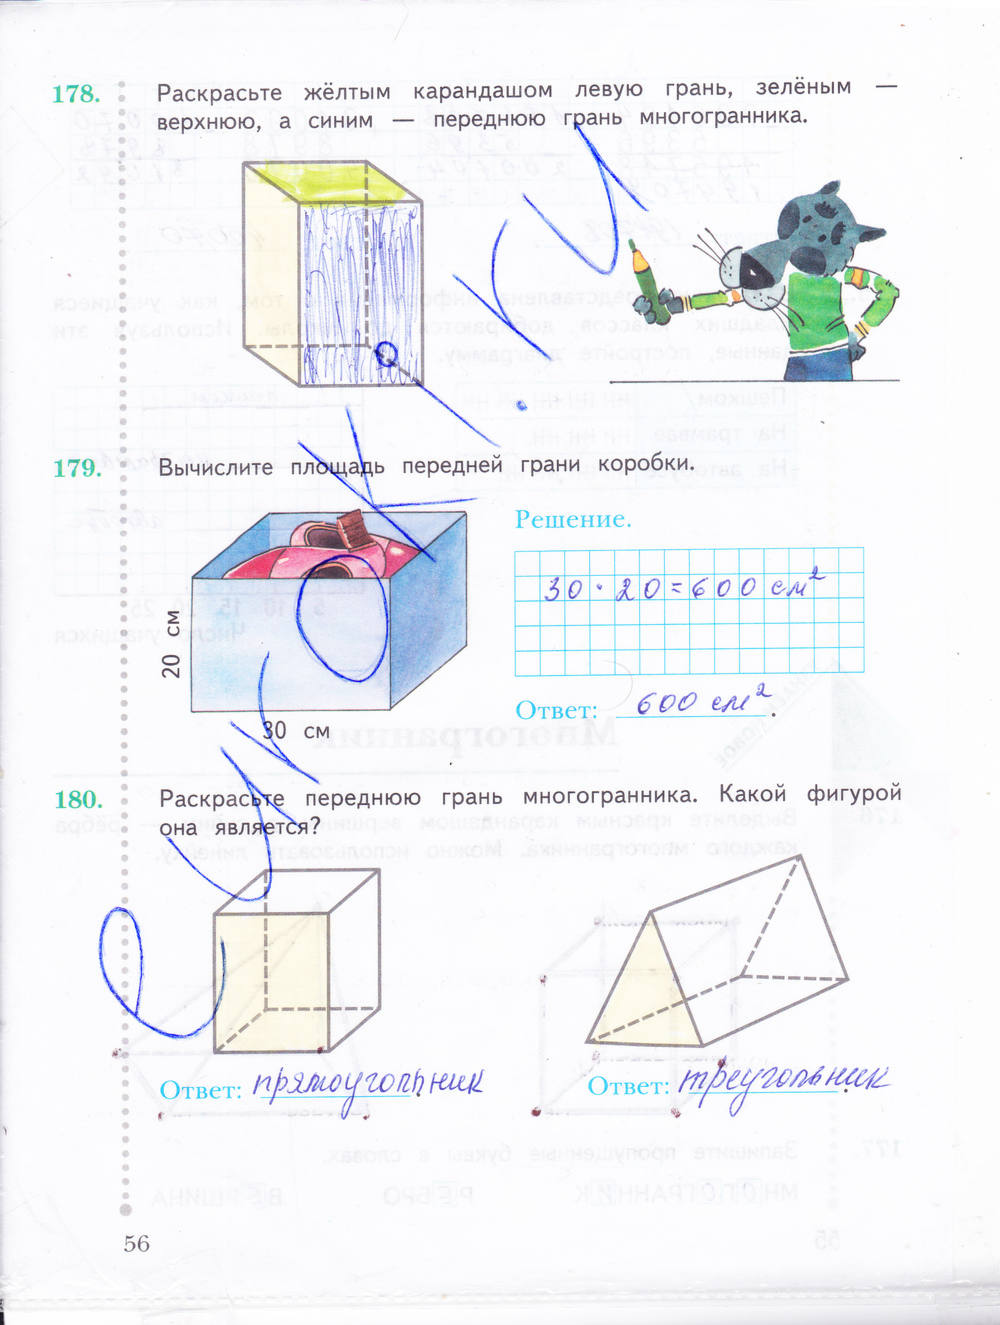 178. Раскрасьте жёлтым карандашом левую грань, зелёным —
верхнюю, а синим — переднюю грань многогранника.
179. Вычислите площадь передней грани коробки.
20 см
30 см
Решение.
30 · 20 = 600 см²
Ответ: 600 см².
180. Раскрасьте переднюю грань многогранника. Какой фигурой
она является?
Ответ: прямоугольник.
Ответ: треугольник.
56